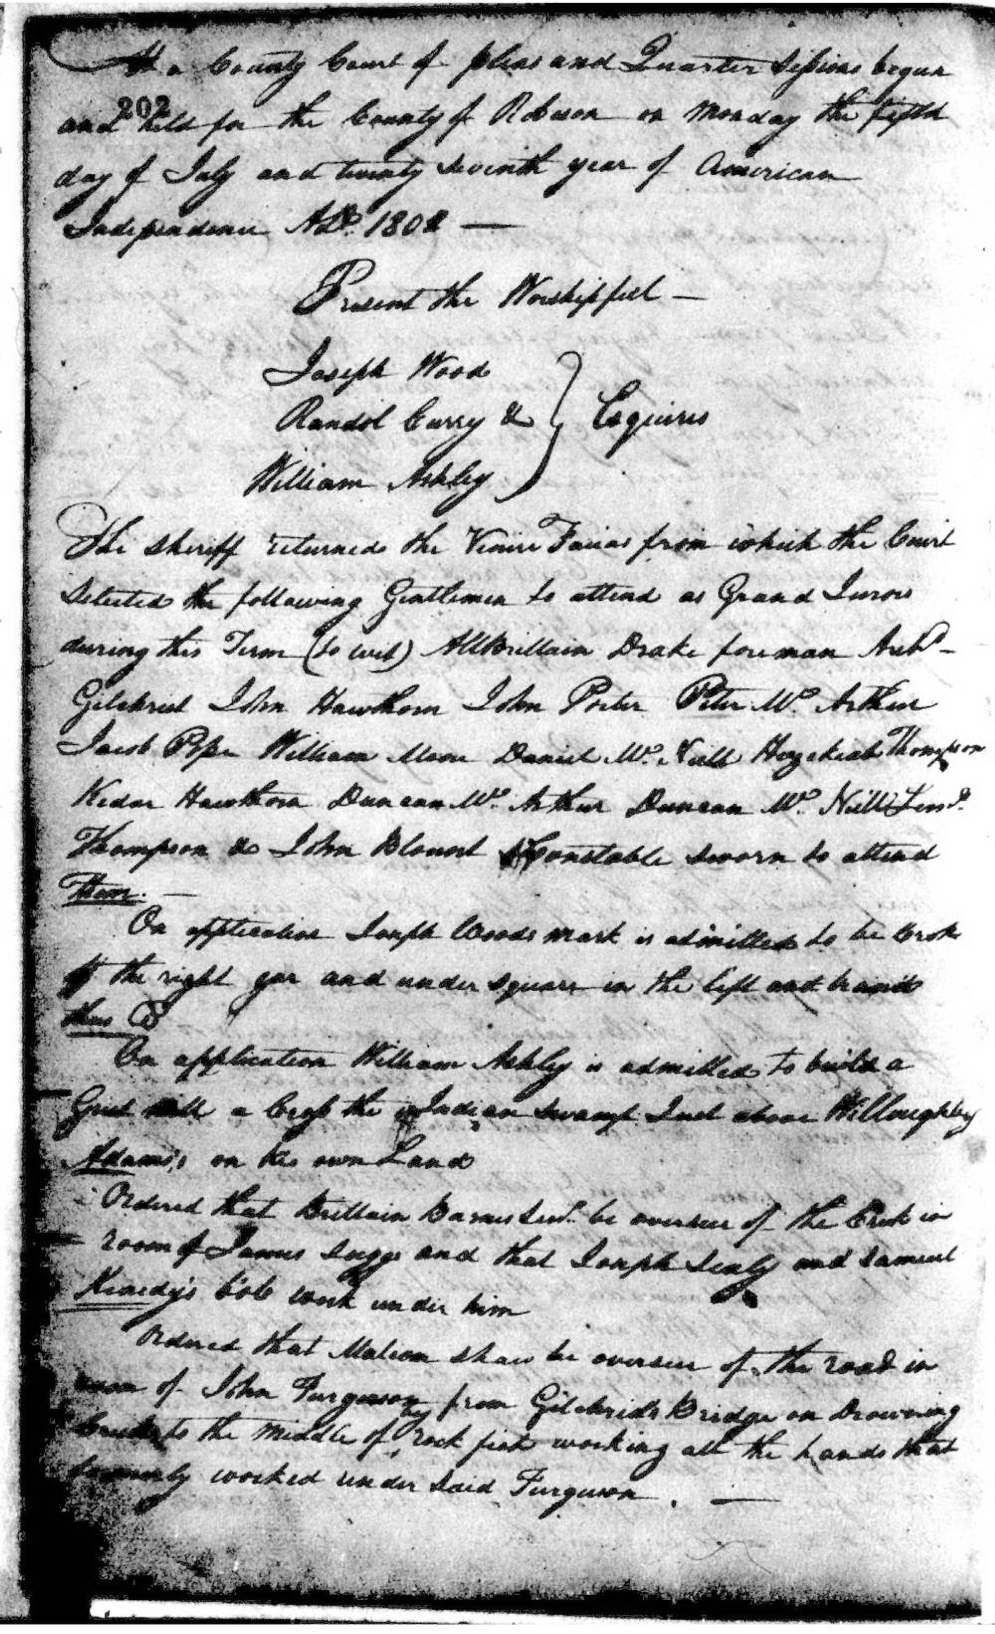 At a County Court of pleas and Quarter Sessions begun
202
and held for the County of Robeson on Monday the fifth
day of July and twenty seventh year of American
Independence AD. 1802 —
Present the Worshipfull —
Joseph Wood
Randol Curry & } Esquires
William Ashley
The Sheriff returned the Venire Facias from which the Court
Selected the following Gentlemen to attend as Grand Jurors
during this Term (to wit) AllBrittain Drake foreman Archd
Gilchrist John Hawthorn John Porter Peter Mc Arthur
Jacob Pope William Moore Daniel Mc Neill Hezekiah Thompson
Kedar Hawthorn Duncan Mc Arthur Duncan Mc Neill
Thompson & John Blount Constable sworn to attend
them. —
On application Joseph Woods mark is admitted to be Crop
of the right year and under square in the left and brand
thus
On application William Ashley is admitted to build a
Grist mill a Cross the Indian Swamp Just above Willoughby
Adams's on his own Land
Ordered that Brittain Barnes Senr. be overseer of the Creek in
room of James Suggs and that Joseph Sealy and Samuel
Kenedy's Bob work under him
Ordered that Malcom Shaw be overseer of the road in
room of John Furguson from Gilchrists Bridge on Drowning
Creek to the middle of rock fish working all the hands that
formerly worked under said Furguson. —